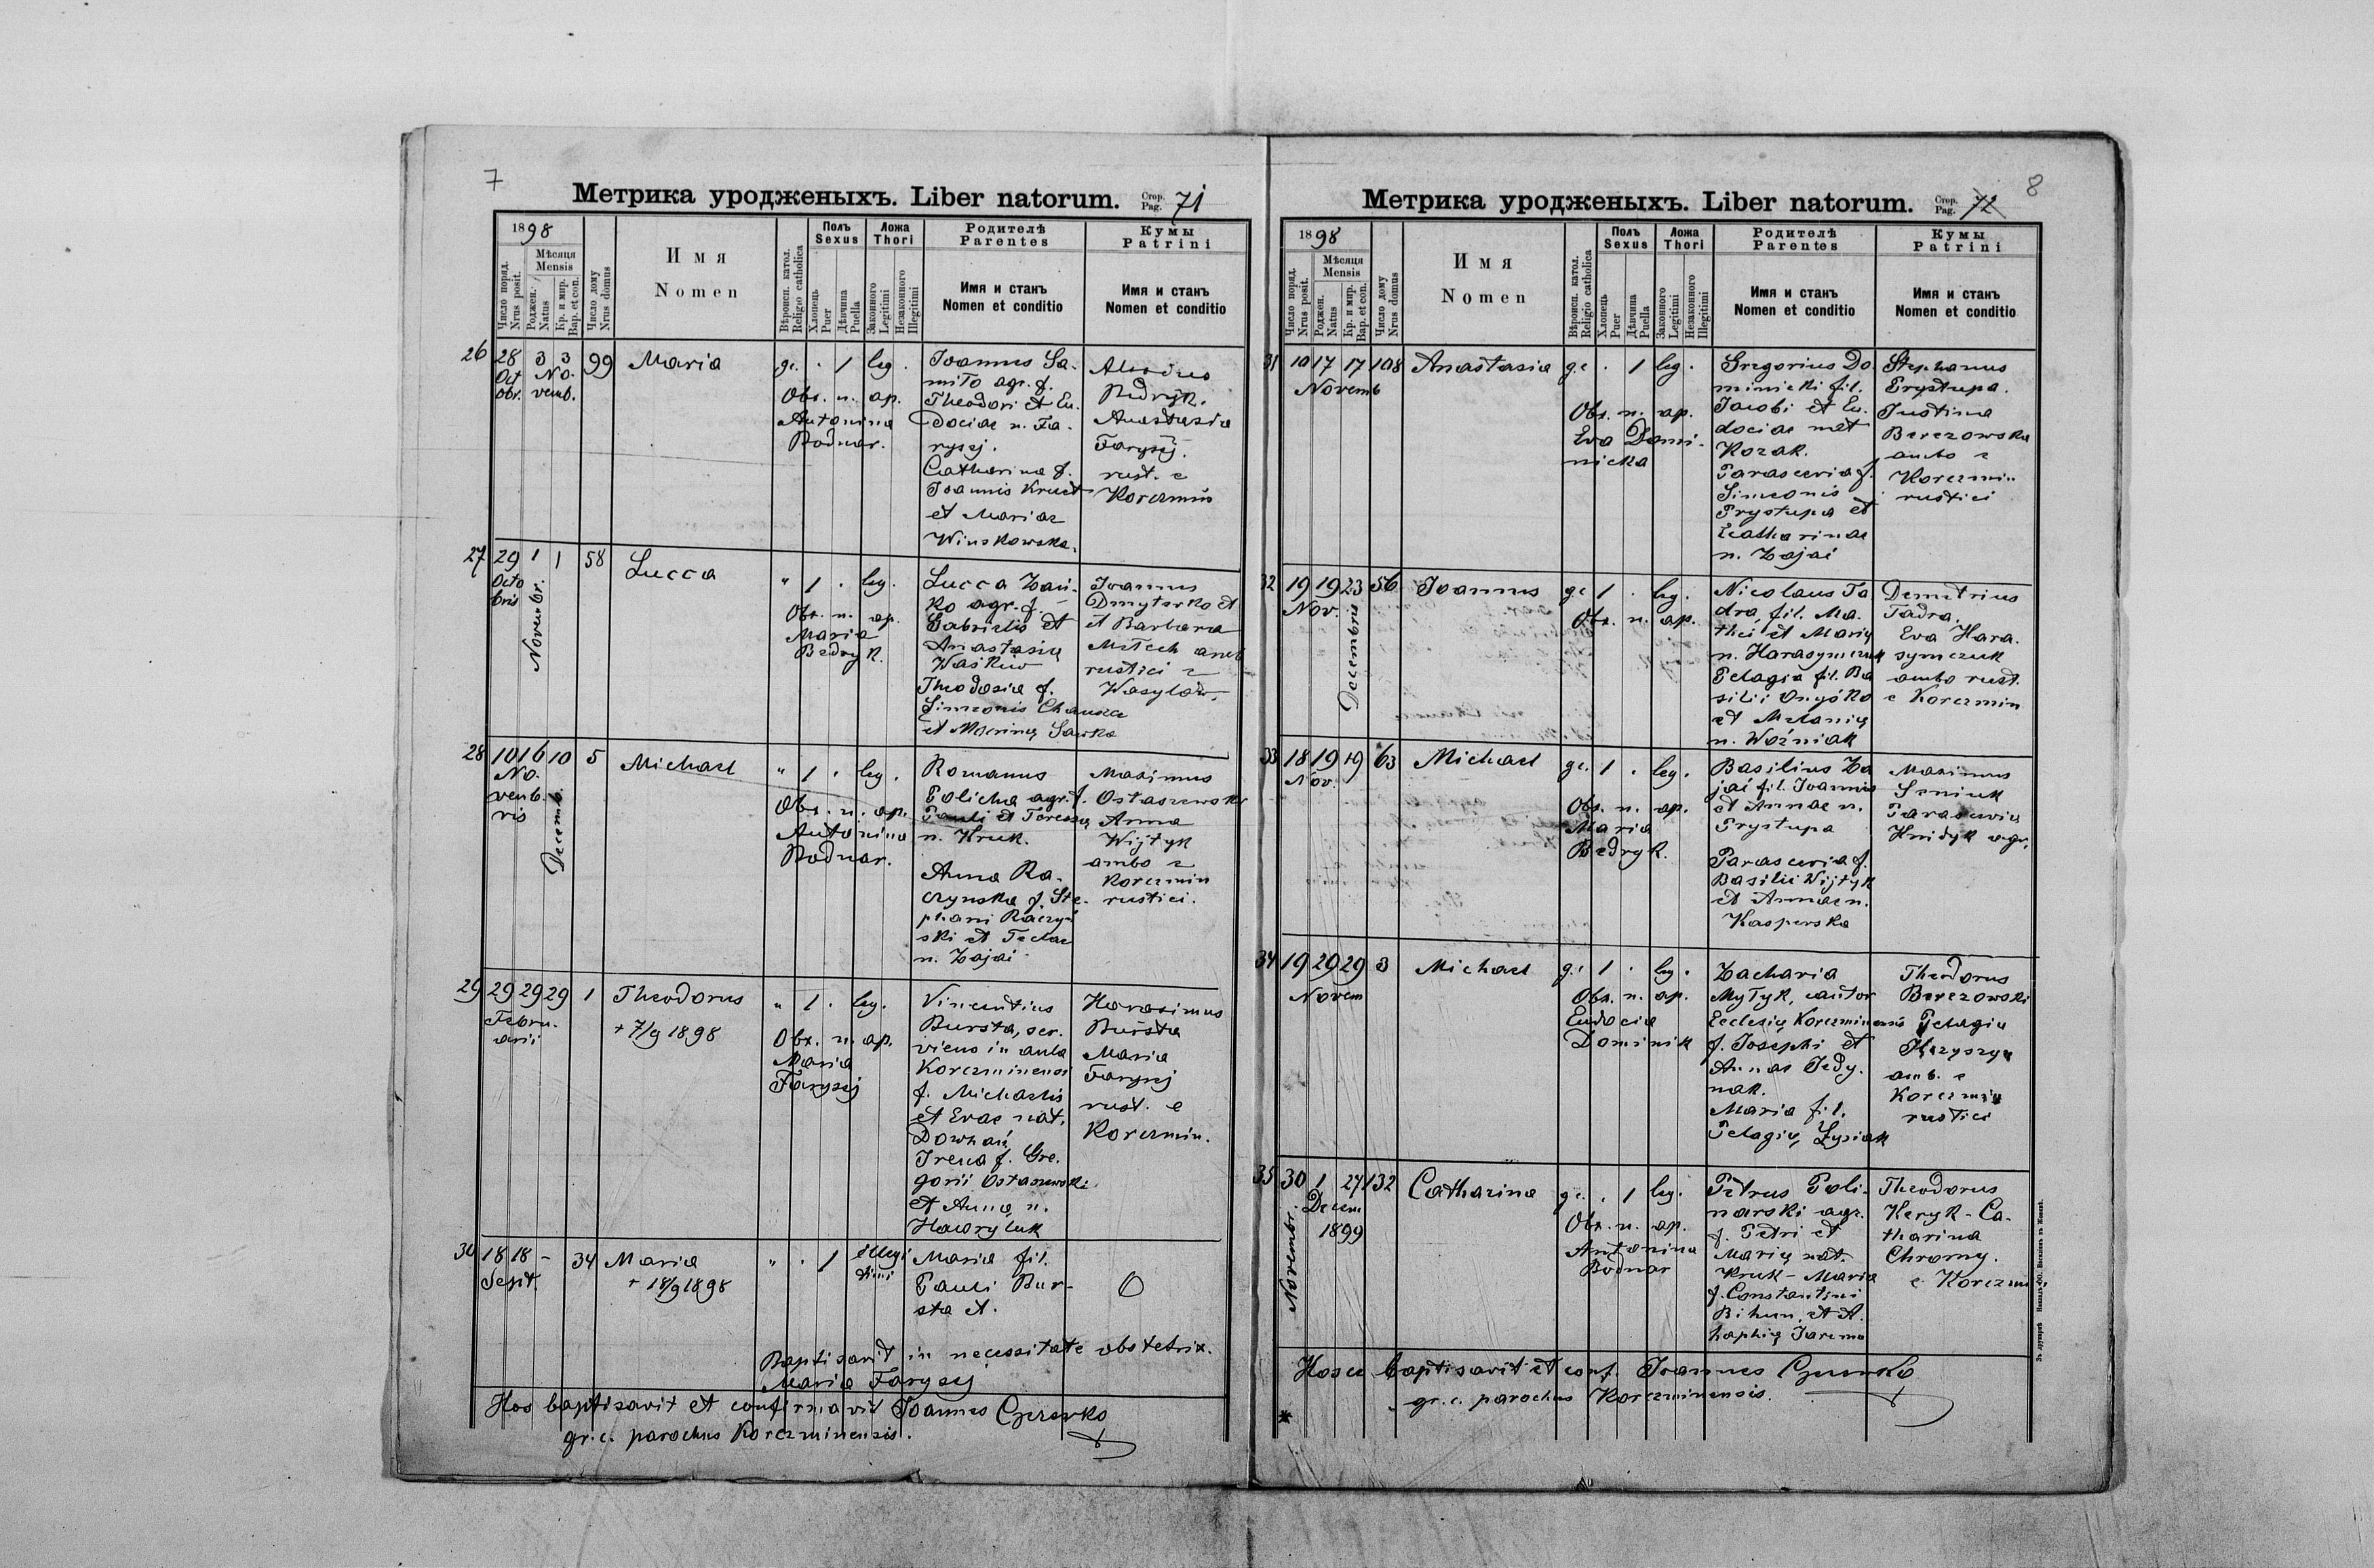 7
Метрика уродженыхъ. Liber natorum. Стор. Pag. 71
1898
Число поряд. Nrus posit.
Мѣсяця Mensis
Роджен. Natus
Кр. и мир. Bap. et con.
Число дому Nrus domus
Имя
Nomen
Вѣроисп. катол. Religio catholica
Полъ Sexus
Хлопець Puer
Дѣвчина Puella
Ложа Thori
Законного Legitimi
Незаконного Illegitimi
Родителѣ Parentes
Имя и станъ
Nomen et conditio
Кумы Patrini
Имя и станъ
Nomen et conditio
26
28 3 3 99 Maria gc. · 1 leg.
Oct No-
obr. vemb.
Obs. n. ap.
Antonina
Bodnar.
Joannes Sa-
mito agr. f.
Theodori et Eu-
dociae n. Fa-
rysej.
Catharina f.
Joannis Kruct
et Mariae
Winskowska.
Bedryk.
Anastasia
Farysej.
rust. e
Korczmin
27
29 1 1 58 Lucca " 1 · leg.
Octo
bris
Novembr.
Obs. n. ap.
Maria
Bedryk.
Lucca Zań-
ko agr. f.
Gabrielis et
Anastasię
Waskiw
Theodosia f.
Simeonis
et Marinę Sawka
Joannes
Dmyterko et
et Barbara
rustici e
28
10 16 10 5 Michael " 1 · leg.
No-
vemb-
ris
Decemb.
Obs. n. ap.
Antonina
Bodnar.
Romanus
Policha agr. f.
Pauli et
n. Kruk.
Anna Ra-
czynska f. Ste-
phani Raczyń
ski et Teclae
n. Zajai
Maximus
Ostaszewski
Anna
Wijtyk
ambo e
Korczmin
rustici.
29
29 29 29 1 Theodorus " 1 · leg.
Febru-
arii
+ 7/9 1898
Obs. n. ap.
Maria
Farysej
Vincentius
Bursta, ser-
viens in aula
Korczminensi
f. Michaelis
et Evae nat.
Irena f. Gre-
gorii Ostaszewski
et Annę n.
Hawryluk
Harasimus
Bursta
Maria
Farysej
rust. e
Korczmin.
30
18 18 - 34 Maria " · 1 illegi
timi
Sept.
+ 18/9 1898
Maria fil.
Pauli Bur-
sta et.
O
Baptisavit in necessitate obstetrix.
Maria Farysej
Hos baptisavit et confirmavit Joannes Czerewko
gr. c. parochus Korczminensis.
8
Метрика уродженыхъ. Liber natorum. Стор. Pag. 72
1898
Число поряд. Nrus posit.
Мѣсяця Mensis
Роджен. Natus
Кр. и мир. Bap. et con.
Число дому Nrus domus
Имя
Nomen
Вѣроисп. катол. Religio catholica
Полъ Sexus
Хлопець Puer
Дѣвчина Puella
Ложа Thori
Законного Legitimi
Незаконного Illegitimi
Родителѣ Parentes
Имя и станъ
Nomen et conditio
Кумы Patrini
Имя и станъ
Nomen et conditio
31
10 17 17 108 Anastasia gc · 1 leg.
Novemb
Obs. n. ap.
Eva Domi-
nicka
Gregorius Do
minicki fil.
Jacobi et Eu-
dociae nat
Kozak.
Parascevia f.
Simeonis
Prystupa et
Catharinae
n. Zajai
Stephanus
Prystupa.
Justina
Berezowska
ambo e
Korczmin
rustici
32
19 19 23 56 Joannes gc 1 · leg.
Nov.
Decembris
Obs. n. ap.
Nicolaus Fa
dra, fil. Ma-
thei et Marię
n. Harasymczuk
Pelagia fil. Ba
silii
et Melanię
n. Woźniak
Demetrius
Fadra.
Eva Hara-
symczuk
ambo rust.
e Korczmin
33
18 19 19 63 Michael gc. 1 · leg.
Nov.
Obs. n. ap.
Maria
Bedryk.
Basilius Za
jai fil. Joannis
et Annae n.
Prystupa
Parascevia f.
Basilii Wijtyk
et Annae n.
Kasperska
Maximus
Seniuk
Hnidyk agr.
34
19 29 29 3 Michael gc 1 · leg.
Novem
Obs. n. ap.
Eudocia
Dominik
Zacharia
Mytyk, cantor
Ecclesię Korczminensis
f. Josephi et
Annae Jedy-
nak.
Maria fil.
Pelagię Łysiak
Theodorus
Berezowski
Pelagia
amb. e
Korczmin
rustici
35
30 1 27 132 Catharina gc. · 1 leg.
Novembr.
Decem
1899
Obs. n. ap.
Antonina
Bodnar
Petrus Poli-
narski agr.
f. Petri et
Marię nat.
Kruk - Maria
f. Constantini
Bihun, et A-
haphię Jarema
Theodorus
Heryk - Ca-
tharina
Chromy.
e Korczmin
Hosce baptisavit et conf. Joannes Czerewko
gr. c. parochus Korczminensis.
*